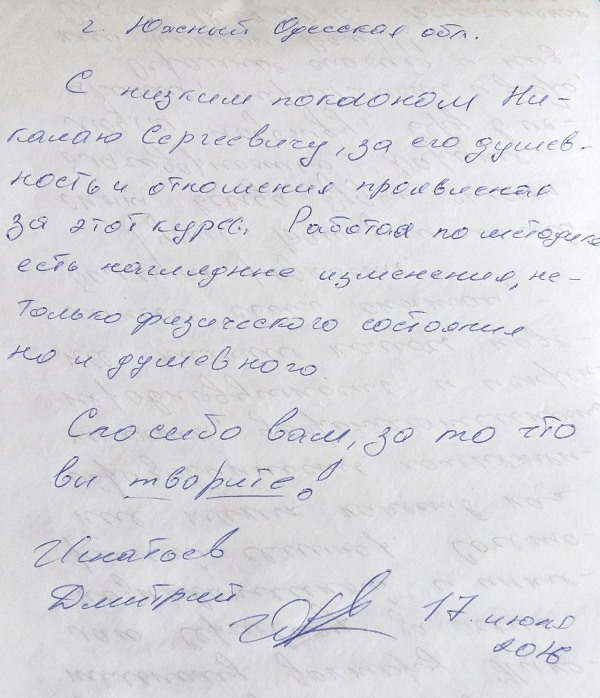 г. Южный Одесская обл.
С низким поклоном Ни-
калаю Сергеевичу, за его душев-
ность и отношения проявленая
за этот курс. Работая по методике
есть наглядние изменения, не-
только физического состояния
но и душевного.
Спосибо вам, за то что
ви творите!
Дмитрий
17. июля
2016